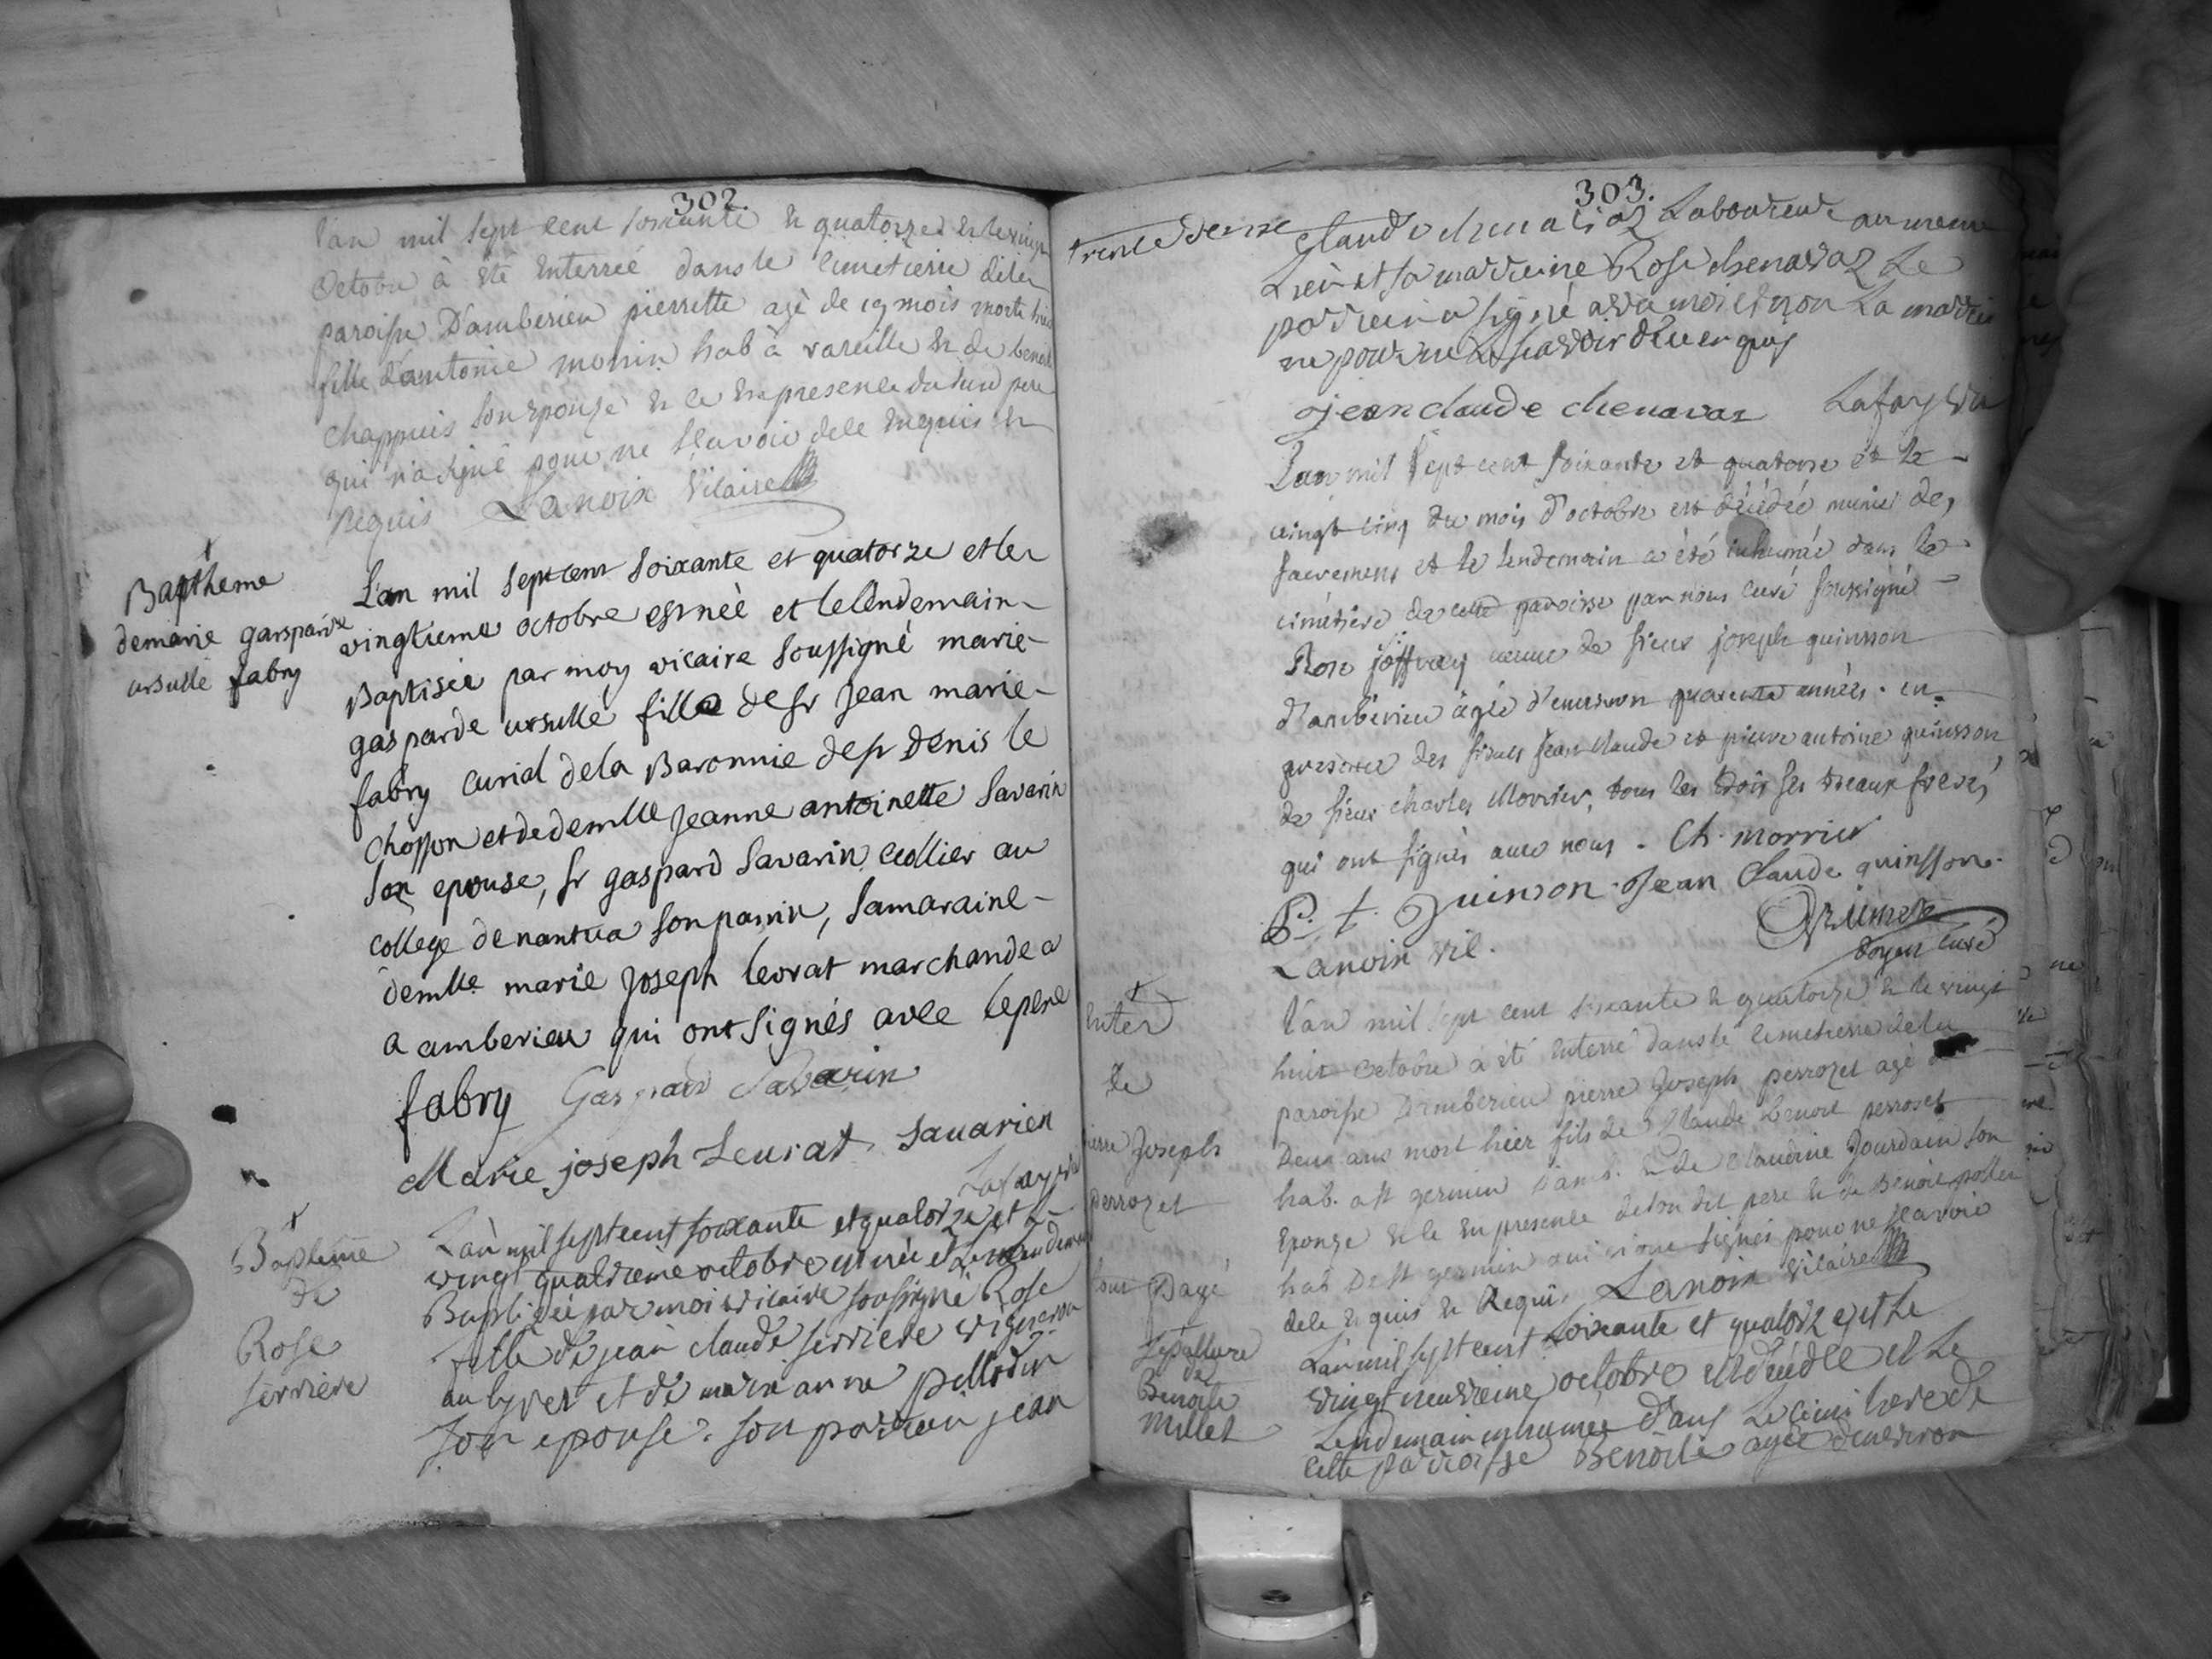 302.
l'an mil sept cent soixante & quatorze & le vingt
octobre à été enterreé dans le cimetierre dela
paroisse D'amberieu pierrette agé de 19 mois morte hier
fille d'antoine monin hab à vareille & de benoite
chappuis son epouse & ce en presence du susd pere
qui n'a signé pour ne sçavoir dele enquis &
requis Lanoix vicaire
Baptheme
demarie gasparde
ursulle fabry
L'an mil sept cent soixante et quatorze et le
vingtieme octobre est neè et le lendemain
Baptisée par moy vicaire soussigné marie
gasparde ursulle fille de sr Jean marie
fabry curial dela Baronnie de st Denis le
chosson et de demlle Jeanne antoinette Savarin
son epouse, sr gaspard Savarin ecollier au
college de nantua son parrin, samaraine
demlle marie Joseph leorat marchande a
a amberieu qui ont signés avec le pere
fabry Gaspard Savarin
Marie joseph Leurat Savarien
Lafay vic
Baptême
de
Rose
serriere
L'an mil sept cent soixante et quatorze et le
vingt quatrieme octobre est née et le lendemain
Baptizée par moi vicaire soussigné Rose
fille de jean claude serriere vigneron
au tyret et de marie anne pellodin
son epouse. son parrein jean
303.
trente deme
Claude chenavaz Laboureur au meme
Lieu et sa marreine Rose chenavaz Le
parrein a signé avec moi et non La marreine
ne pour ne Le scavoir de ce enquis
jean claude chenavaz Lafay vic
L'an mil sept cent soixante et quatorze et le
vingt cinq du mois d'octobre est décédée munie des
sacremens et le lendemain a été inhumée dans le
cimetière de cette paroisse par nous curé soussigné
Rose joffray veuve de sieur joseph quinson
d'ambérieu âgée d'environ quarente années. en
presence des sieurs jean claude et pierre antoine quinsson
de sieur charles Morrier, tous les trois ses beaux freres,
qui ont signés avec nous. Ch. morrier
P. A. Quinson. Jean Claude quinsson.
Lanoix vic.
doyen curé
Enter
de
pierre Joseph
perrozet
l'an mil sept cent soixante & quatorze & le vingt
huit octobre a été enterré dans le cimetierre dela
paroisse D'amberieu pierre Joseph perrozet agé de
Deux ans mort hier fils de Claude Benoit perroset
hab. a st germin d'amb. & de Claudine Jourdain son
Eponge & ce en presence de son dit pere & de Benoit
hab De st germin qui n'ont signés pour ne scavoir
dele enquis & Requis Lanoix vicaire
Sepulture
de
Benoite
Millet
L'an mil sept cent soixante et quatorze et Le
vingt neuvieme octobre est decedée et Le
Lendemain inhumée dans Le cimitiere de
cette parroisse Benoite agée d'environ